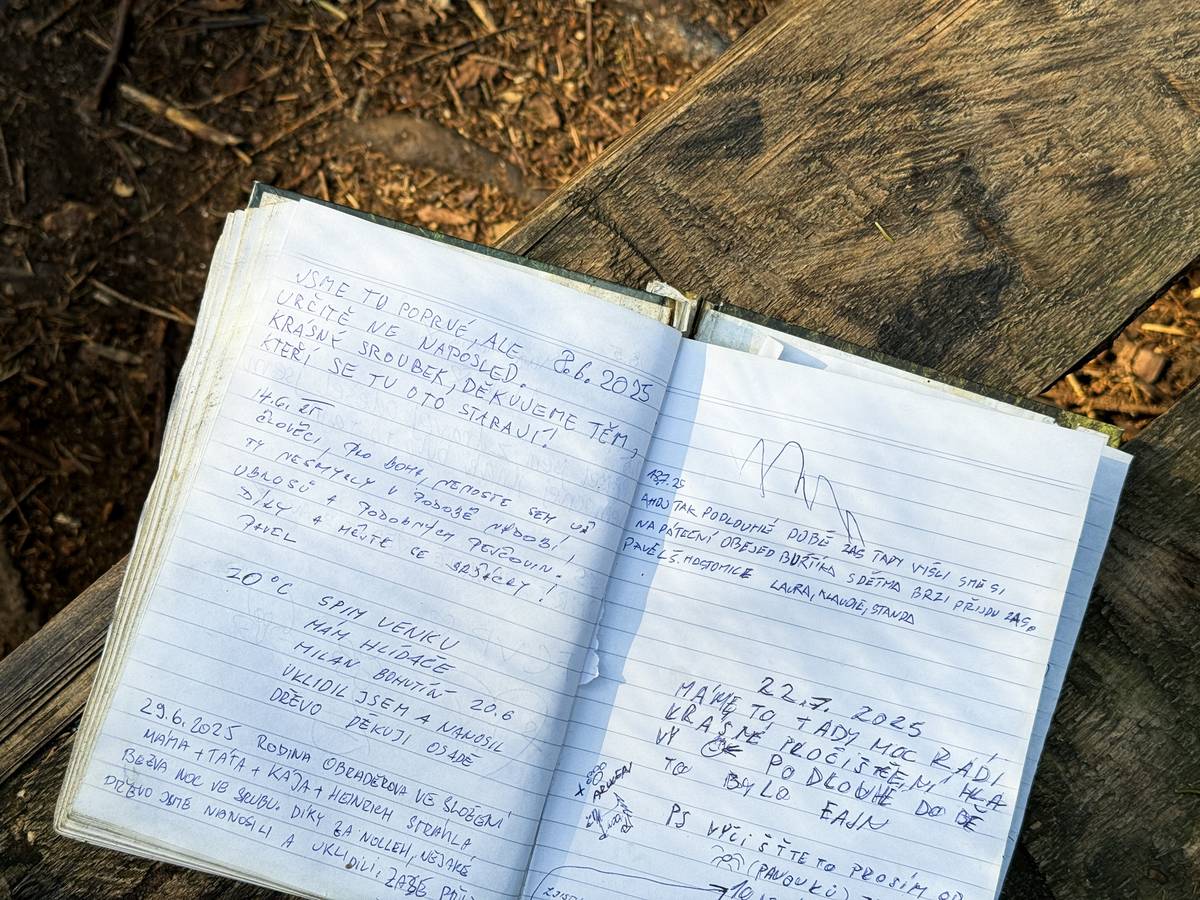 JSME TU POPRVÉ, ALE 8.6. 2025
URČITĚ NE NAPOSLED.
KRÁSNÝ SROUBEK, DĚKUJEME TĚM,
KTEŘÍ SE TU OTO STARAJÍ!
14.6.
ČLOVĚCI, PRO BOHA, NENOSTE SEM UŽ
TY NESMYSLY V PODOBĚ NÁDOBÍ,
UBRUSŮ A PODOBNÝCH
DÍKY A MĚJTE SE
PAVEL
20°C SPÍM VENKU
MÁM HLÍDAČE
MILAN BOHUTÍN 20.6
UKLIDIL JSEM A NANOSIL
DŘEVO DĚKUJI OSADĚ
29.6.2025 RODINA OBRADEROVA VE SLOŽENÍ
MÁMA + TÁTA + KÁJA + HEINRICH STRÁVILA
NOC VE SRUBU. DÍKY ZA NOCLEH, NĚJAKÉ
DŘEVO JSME NANOSILI A UKLIDILI, ZASE
18.7.25
AHOJ TAK PODLOUHÉ DOBĚ ZAS TADY VYŠLI SME SI
NA PÁTEČNÍ OBĚJED BUŘTÍKA S DĚTMA BRZI PŘIJDU ZAS.
PAVEL Š. HOSTOMICE LAURA, KLAUDIE, STANDA
22.7. 2025
MÁME TO TADY MOC RÁDI
KRÁSNĚ
VÝ PO DLOUHÉ DOBĚ
TO BYLO FAJN
PS VYČIŠŤTE TO PROSÍM OD
(PAVOUKŮ)